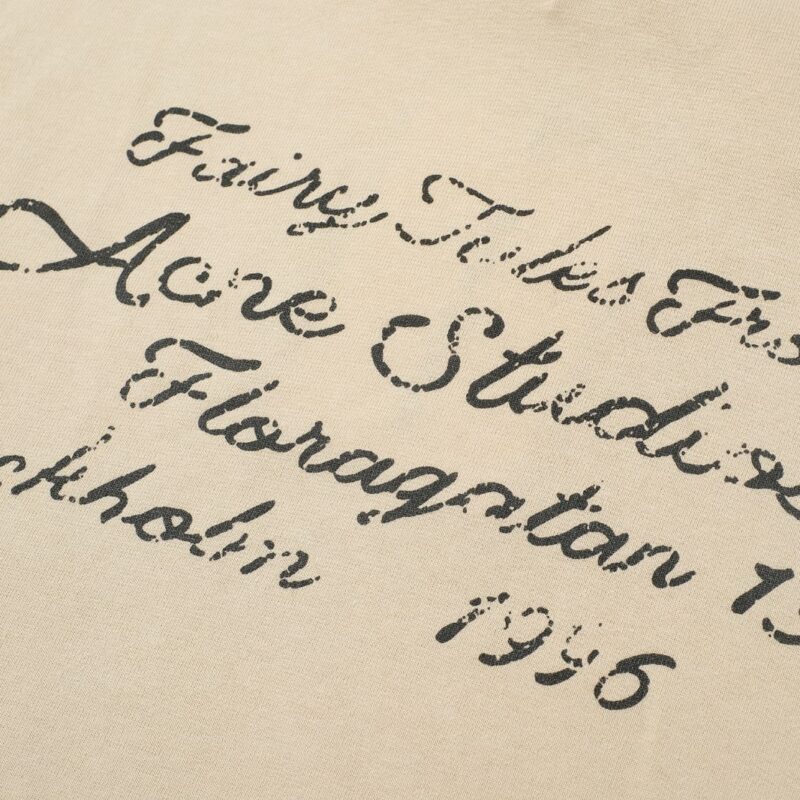 Fairy Tales Fro
Acne Studios
Floragatan 13
ockholm
1996